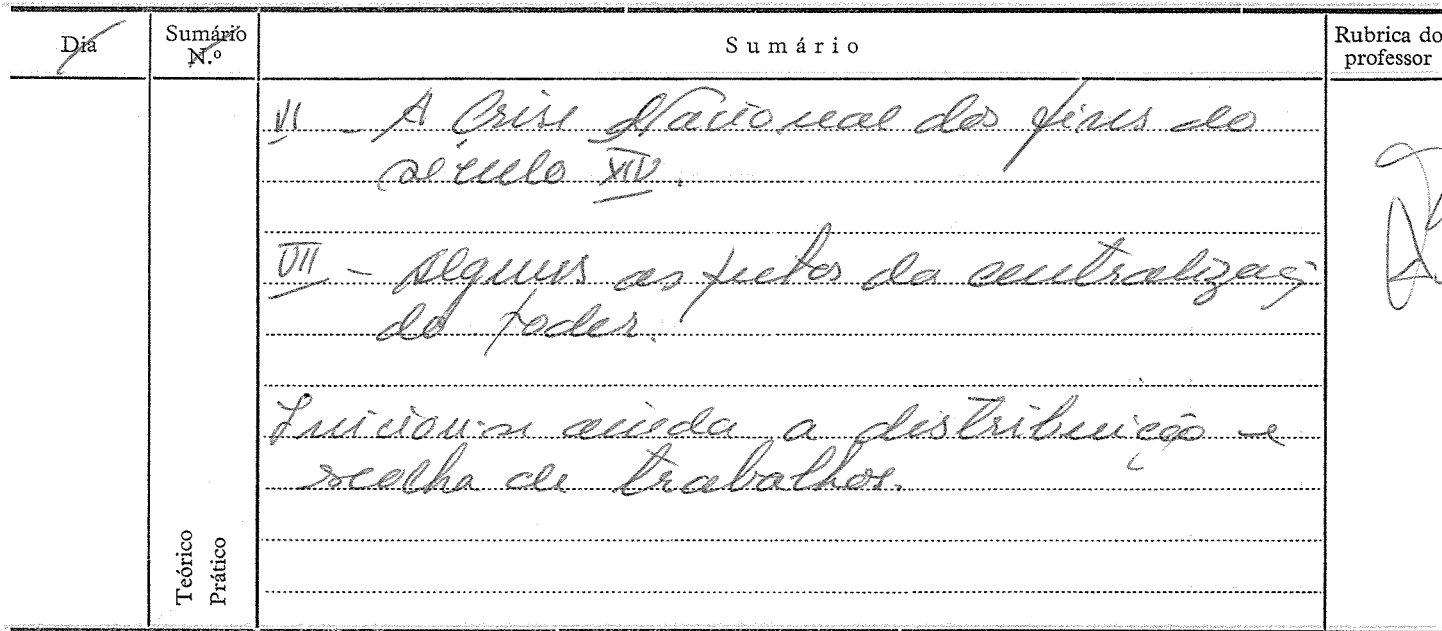 Dia
Sumário
N.º
Sumário
Rubrica do
professor
VI - A Crise Nacional dos fins do
século XIV.
VII - Alguns aspectos da centralizaç
do poder.
Iniciou-se ainda a distribuição e
escolha de trabalhos.
Teórico
Prático